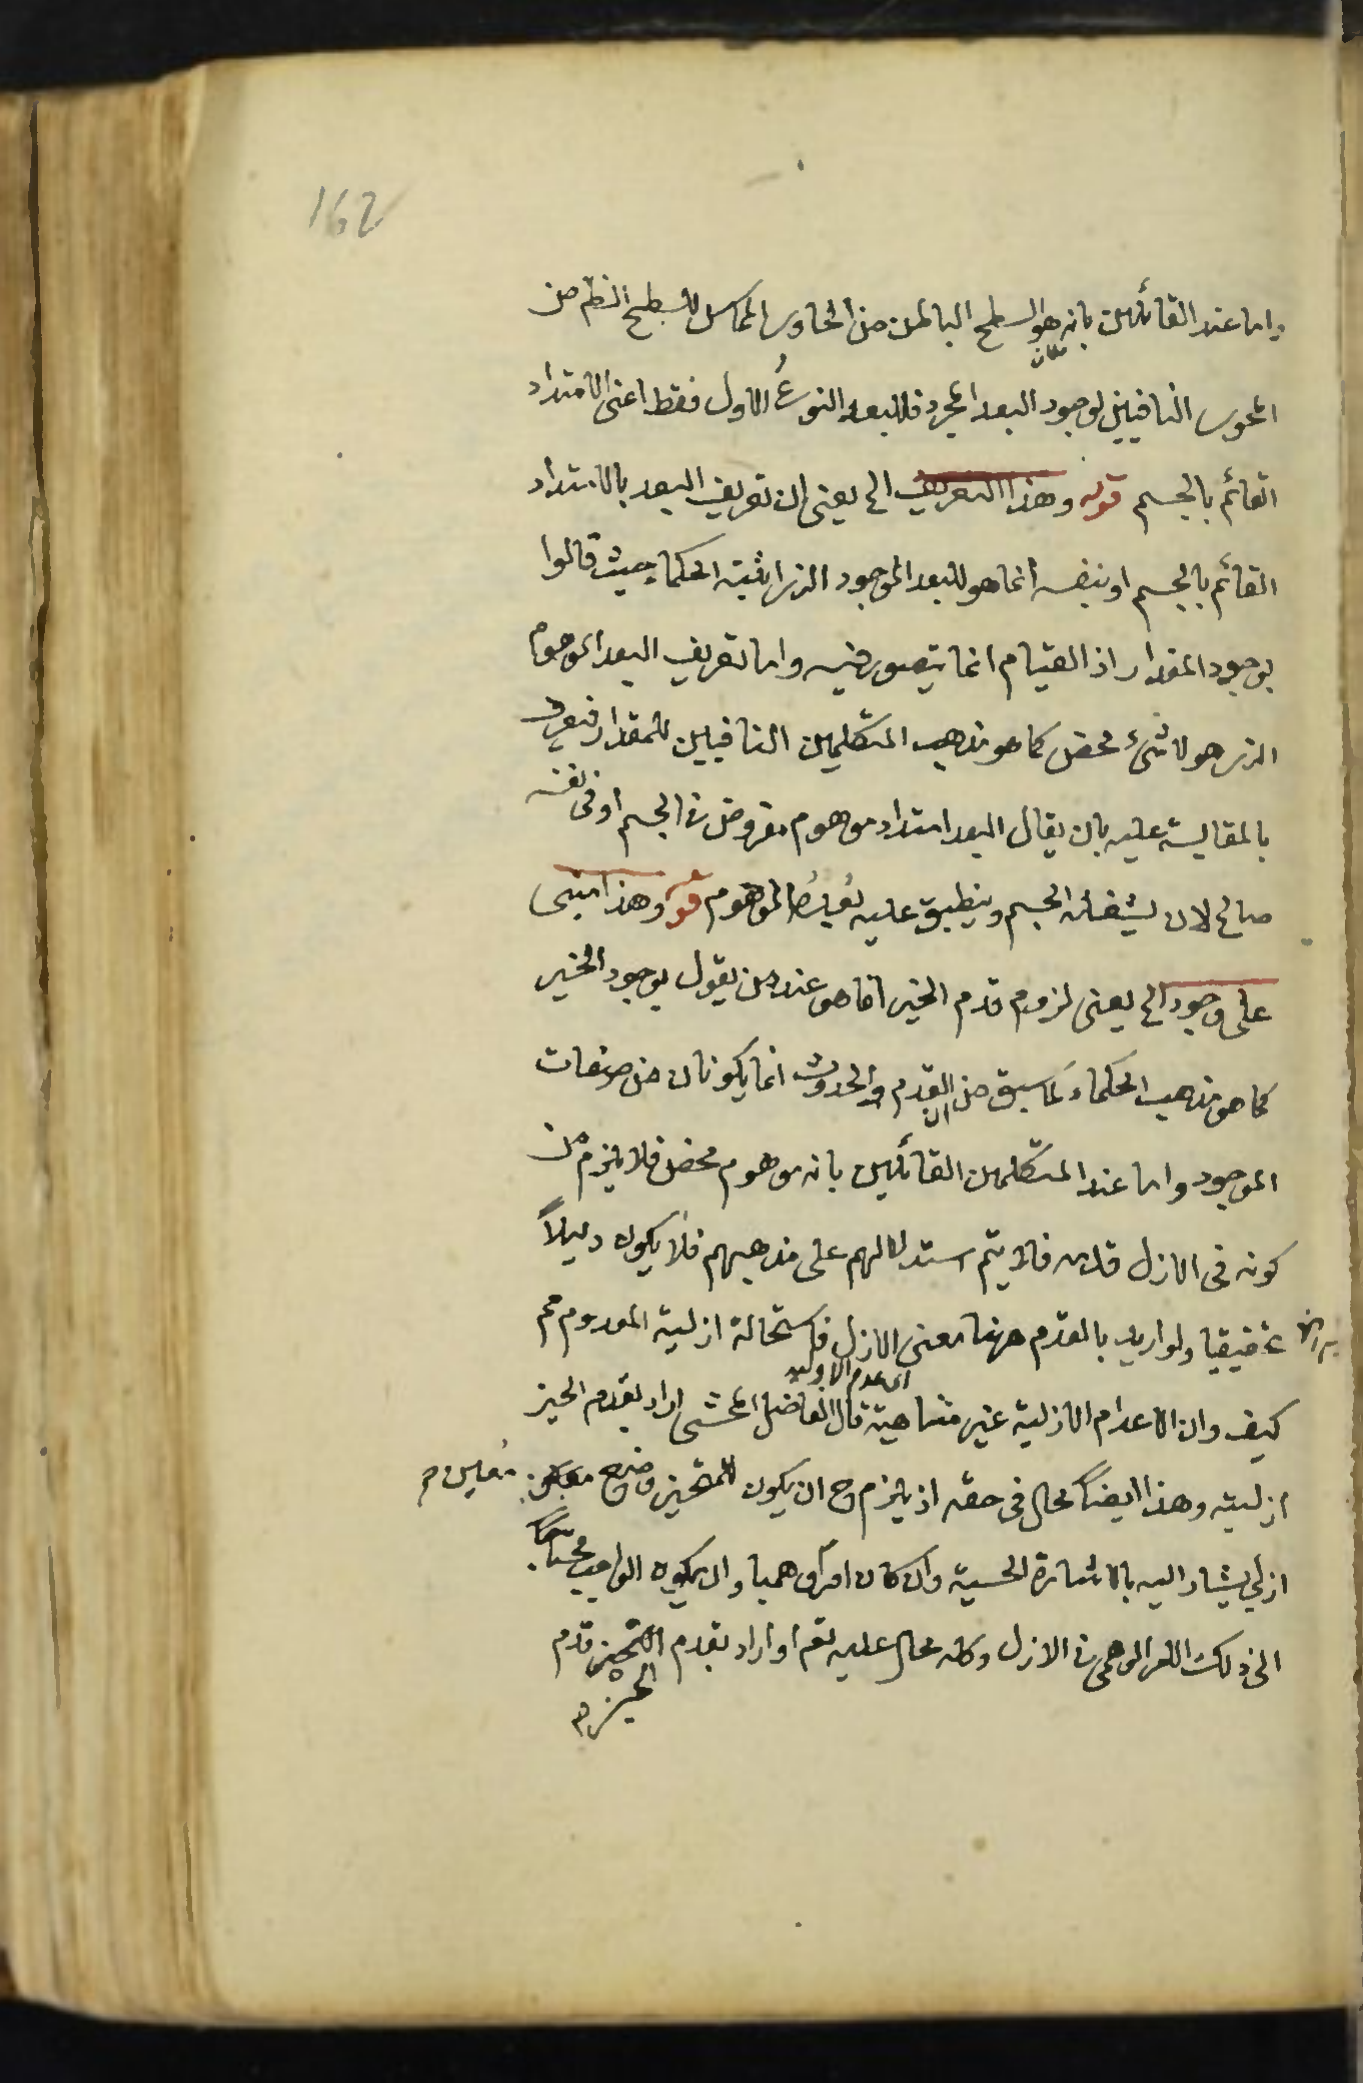 162
واما عند القائلين بانه هو السطح الباطن من الحاوى المماس للسطح الظم من
المحوى النافيين لوجود البعد المجرد فللبعد النوع الاول فقط اعنى الامتداد
القائم بالجسم قوله وهذا التعريف الخ يعنى ان تعريف البعد بالامتداد
القائم بالجسم او بنفسه انما هو للبعد الموجود الذى اثبته الحكماء حيث قالوا
بوجود المقدار اذ القيام انما يتصور فيه واما تعريف البعد الموهوم
الذى هو لا شئ محض كما هو مذهب المتكلمين النافيين للمقدار فيعرف
بالمقايسة عليه بان يقال البعد امتداد موهوم مفروض فى الجسم او فى نفسه
صالح لان يشغله الجسم وينطبق عليه بعده الموهوم قوله وهذا مبنى
على وجود الخ يعنى لزوم قدم الحيز انما هو عند من يقول بوجود الحيز
كما هو مذهب الحكماء لما سبق من ان القدم والحدوث انما يكونان من صفات
الموجود واما عند المتكلمين القائلين بانه موهوم محض فلا يلزم من
كونه فى الازل قدمه فلا يتم استدلالهم على مذهبهم فلا يكون دليلاً
تحقيقيا ولو اريد بالقدم ههنا معنى الازل فاستحالة ازلية المعدوم مم
اى عدم الاولية
كيف وان الاعدام الازلية غير متناهية قال الفاضل المحشى اراد بقدم الحيز
ازليته وهذا ايضاً محال فى حقه اذ يلزم ح ان يكون للمتحيز وضع معين
معين م
ازلى يشار اليه بالاشارة الحسية وان كان امراً وهميا وان يكون الواجب محتاجاً
الى ذلك الامر الوهمى فى الازل وكله محال عليه تعم او اراد بقدم المتحيز قدم
الحيز م